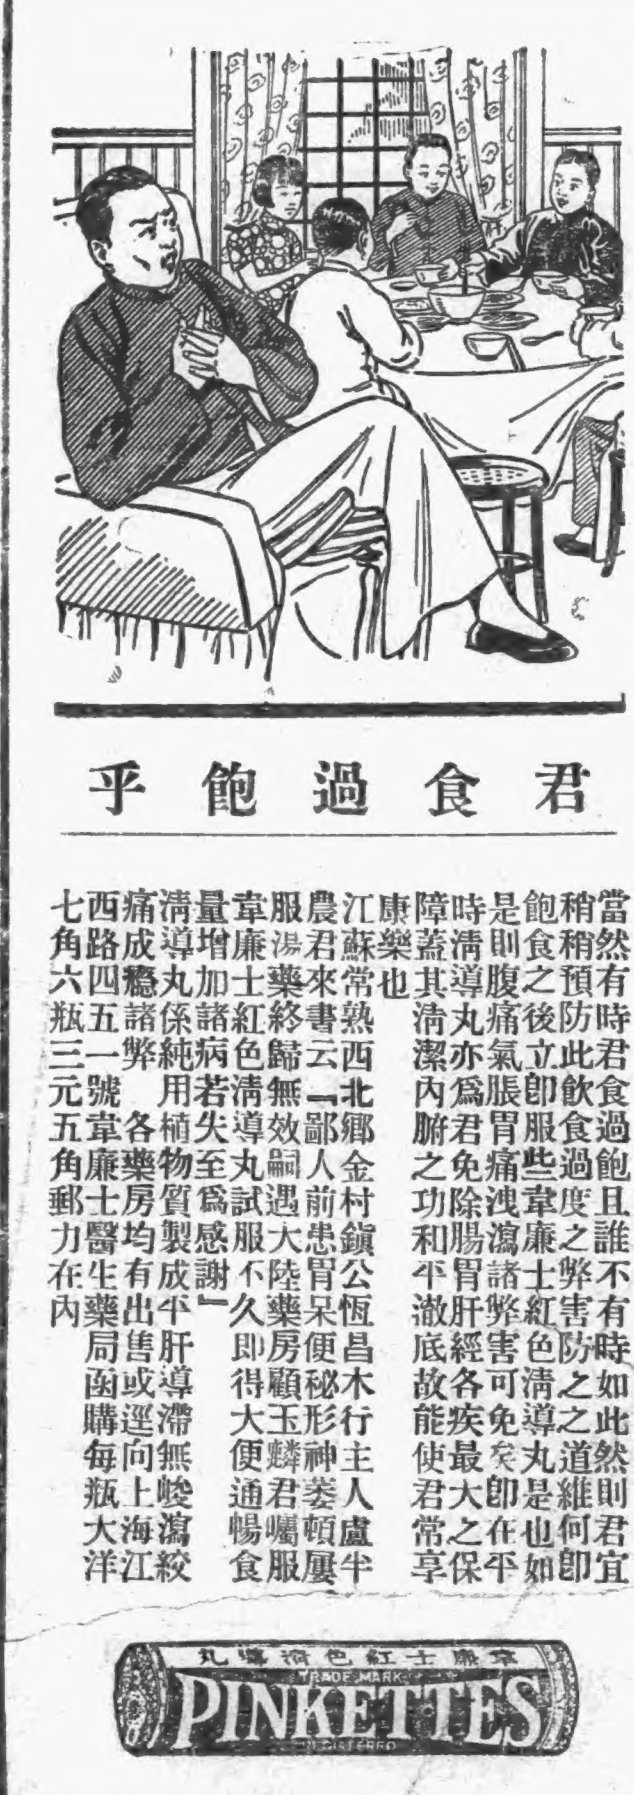 君食過飽乎
當然有時君食過飽且誰不有時如此然則君宜
稍稍預防此飲食過度之弊害防之之道維何卽
飽食之後立卽服些韋廉士紅色清導丸是也如
是則腹痛氣脹胃痛洩瀉諸弊害可免矣卽在平
時清導丸亦爲君免除腸胃肝經各疾最大之保
障蓋其清潔內腑之功和平澈底故能使君常享
康樂也
江蘇常熟西北鄉金村鎭公恆昌木行主人盧半
農君來書云『鄙人前患胃呆便秘形神萎頓屢
服湯藥終歸無效嗣遇大陸藥房顧玉麟君囑服
韋廉士紅色清導丸試服不久即得大便通暢食
量增加諸病若失至爲感謝』
清導丸係純用植物質製成平肝導滯無峻瀉絞
痛成癮諸弊 各藥房均有出售或逕向上海江
西路四五一號韋廉士醫生藥局函購每瓶大洋
七角六瓶三元五角郵力在內
韋廉士紅色清導丸
TRADE MARK
PINKETTES
REGISTERED